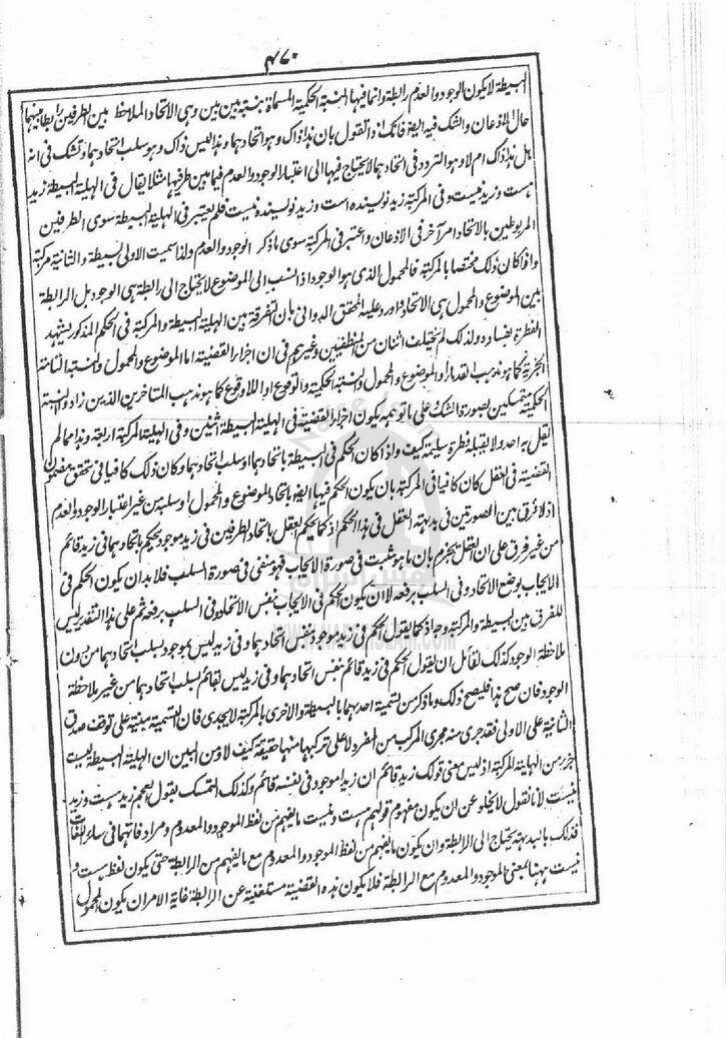 ۴۷۰
البسيطة لا يكون الوجود والعدم رابطة وانما فيها النسبة الحكمية المسماة بنسبة بين بين وهى الاتحاد الملاحظ بين الطرفين رابطا بينهما
حال الاذعان والشك فيه ايضا فانك اذا تقول بان هذا ذاك وهو اتحادهما وهذا ليس ذاك وهو سلب اتحادهما وتشك فى انه
هل هذا ذاك ام لا وهو التردد فى اتحادهما لا يحتاج فيها الى اعتبار الوجود والعدم فيما بين طرفيها مثلا يقال فى الهلية البسيطة زيد
هست وزيد نيست وفى المركبة زيد نويسنده است وزيد نويسنده نيست فلم يعتبر فى الهلية البسيطة سوى الطرفين
المربوطين بالاتحاد امر آخر فى الاذعان واعتبر فى المركبة سوى ما ذكر الوجود والعدم ولذا سميت الاولى بسيطة والثانية مركبة
واذا كان ذلك مختصا بالمركبة فالمحمول الذى هو الوجود اذا نسب الى الموضوع لا يحتاج الى رابطة هى الوجود بل الرابطة
بين الموضوع والمحمول هى الاتحاد واورد عليه المحقق الدوانى بان التفرقة بين الهلية البسيطة والمركبة فى الحكم المذكور يشهد
الفطرة بفساده ولذلك لم يختلف اثنان من المنطقيين وغيرهم فى ان اجزاء القضية اما الموضوع والمحمول والنسبة التامة
الخبرية كما هو مذهب القدماء او الموضوع والمحمول والنسبة الحكمية والوقوع او اللاوقوع كما هو مذهب المتاخرين الذين زادوا النسبة
الحكمية متمسكين بصورة الشك على ما توهمه يكون اجزاء القضية فى الهلية البسيطة اثنين وفى الهلية المركبة اربعة وهذا مما لم
يقل به احد ولا يقبله فطرة سليمة كيف واذا كان الحكم فى البسيطة باتحادهما او سلب اتحادهما وكان ذلك كافيا فى تحقق مضمون
القضية فى العقل كان كافيا فى المركبة بان يكون الحكم فيها ايضا باتحاد الموضوع والمحمول او سلبه من غير اعتبار الوجود والعدم
اذ لا فرق بين الصورتين فى بديهة العقل فى هذا الحكم اذ كما يحكم العقل باتحاد الطرفين فى زيد موجود يحكم باتحادهما فى زيد قائم
من غير فرق على ان العقل يجزم بان ما هو مثبت فى صورة الايجاب فهو منفى فى صورة السلب فلابد ان يكون الحكم فى
الايجاب بوضع الاتحاد وفى السلب برفعه لا ان يكون الحكم فى الايجاب بنفس الاتحاد وفى السلب برفعه ثم على هذا التقدير ليس
للفرق بين البسيطة والمركبة وجه اذ كما يقول الحكم فى زيد موجود بنفس اتحادهما وفى زيد ليس بموجود بسلب اتحادهما من دون
ملاحظة الوجود كذلك لقائل ان يقول الحكم فى زيد قائم بنفس اتحادهما وفى زيد ليس بقائم بسلب اتحادهما من غير ملاحظة
الوجود فان صح هذا فليصح ذلك وما ذكر من تسمية احدهما بالبسيطة والاخرى بالمركبة لا يجدى فان التسمية مبنية على توقف صدق
الثانية على الاولى فقد جرى منه مجرى المركب من المفرد لا على تركبها منها حقيقة كيف لا ومن البين ان الهلية البسيطة ليست
جزء من الهلية المركبة اذ ليس معنى قولك زيد قائم ان زيدا موجود فى نفسه قائم وكذلك التمسك بقول العجم زيد هست وزيد
نيست لانا نقول لا يخلو عن ان يكون مفهوم قولهم هست ونيست ما يفهم من لفظ الموجود والمعدوم ومرادفاتهما فى سائر اللغات
فذلك بالبديهة يحتاج الى الرابطة وان يكون ما يفهم من لفظ الموجود والمعدوم مع ما يفهم من الرابطة حتى يكون لفظ هست و
نيست ههنا بمعنى الموجود والمعدوم مع الرابطة فلا يكون هذه القضية مستغنية عن الرابطة غاية الامر ان يكون المحمول